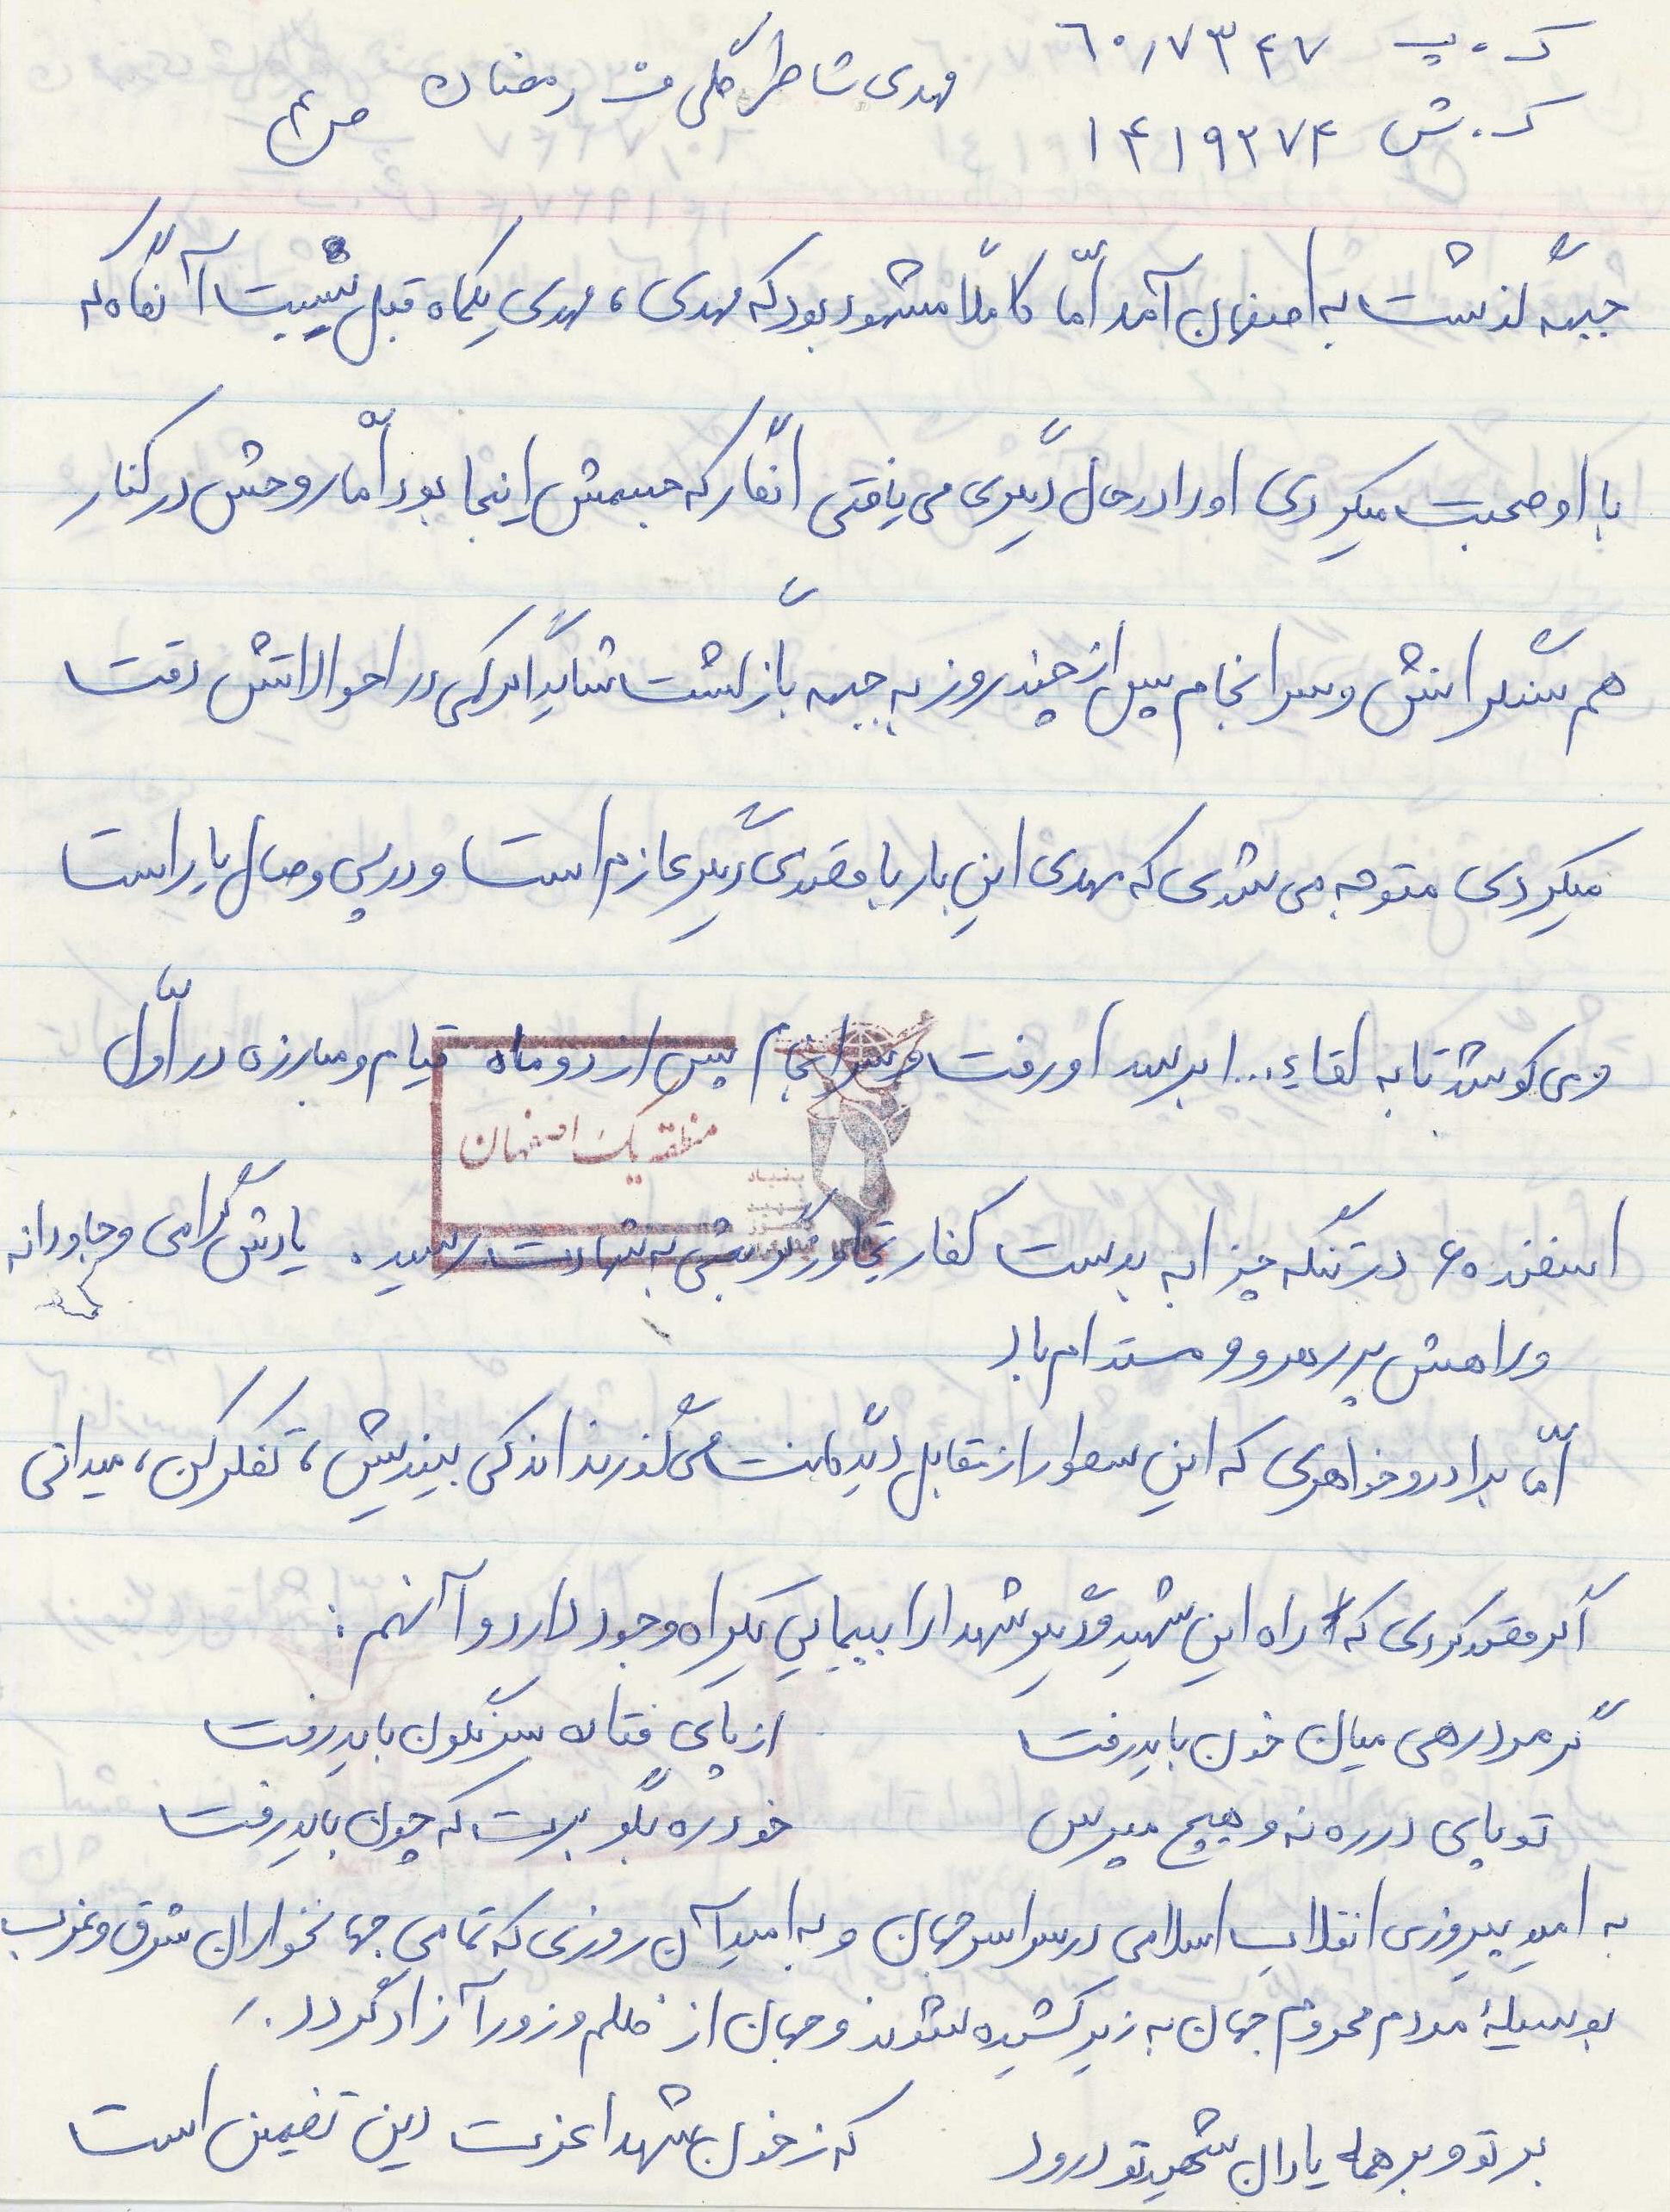 ک. پ ۶۰٫۷۳۴۷
ک. ش ۱۴۱۹۳۷۴
مهدی شاطر گلی فـ رمضان ص ۴
جبهه گذشت به اصفهان آمد امّا کاملاً مشهود بود که مهدی، مهدی یکماه قبل نیست آنگاه که
با او صحبت میکردی او را در حال دیگری می یافتی انگار که جسمش اینجا بود امّا روحش در کنار
هم سنگرانش و سرانجام پس از چند روز به جبهه بازگشت شاید اگر کمی در احوالاتش دقت
میکردی متوجه می شدی که مهدی این بار با مقصدی دیگر عازم است و در پی وصال یار است
و می کوشد تا به لقاء ا... برسد او رفت و سرانجام پس از دو ماه قیام و مبارزه در اوّل
منطقه یک اصفهان
بنیاد شهید
اسفند ۶۰ در تنگه چزابه بدست کفار تجاوزگر بعثی به شهادت رسید. یادش گرامی و جاودانه
و راهش پر رهرو و مستدام باد
امّا برادر و خواهری که این سطور از مقابل دیدگانت می گذرند اندکی بیندیش، تفکر کن، میدانی
اگر قصد کردی که راه این شهید و دیگر شهدا را بپیمایی یک راه وجود دارد و آنهم:
گر مرد رهی میان خون باید رفت از پای فتاده سرنگون باید رفت
تو پای در ره نه و هیچ مپرس خود ره بگوبدت که چون باید رفت
به امید پیروزی انقلاب اسلامی در سراسر جهان و به امید آن روزی که تمامی جهانخواران شرق و غرب
بوسیلهٔ مردم محروم جهان به زیر کشیده شوند و جهان از ظلم و زور آزاد گردد.
بر تو و بر همه یاران شهید تو درود که ز خون شهدا عزت دین تضمین است